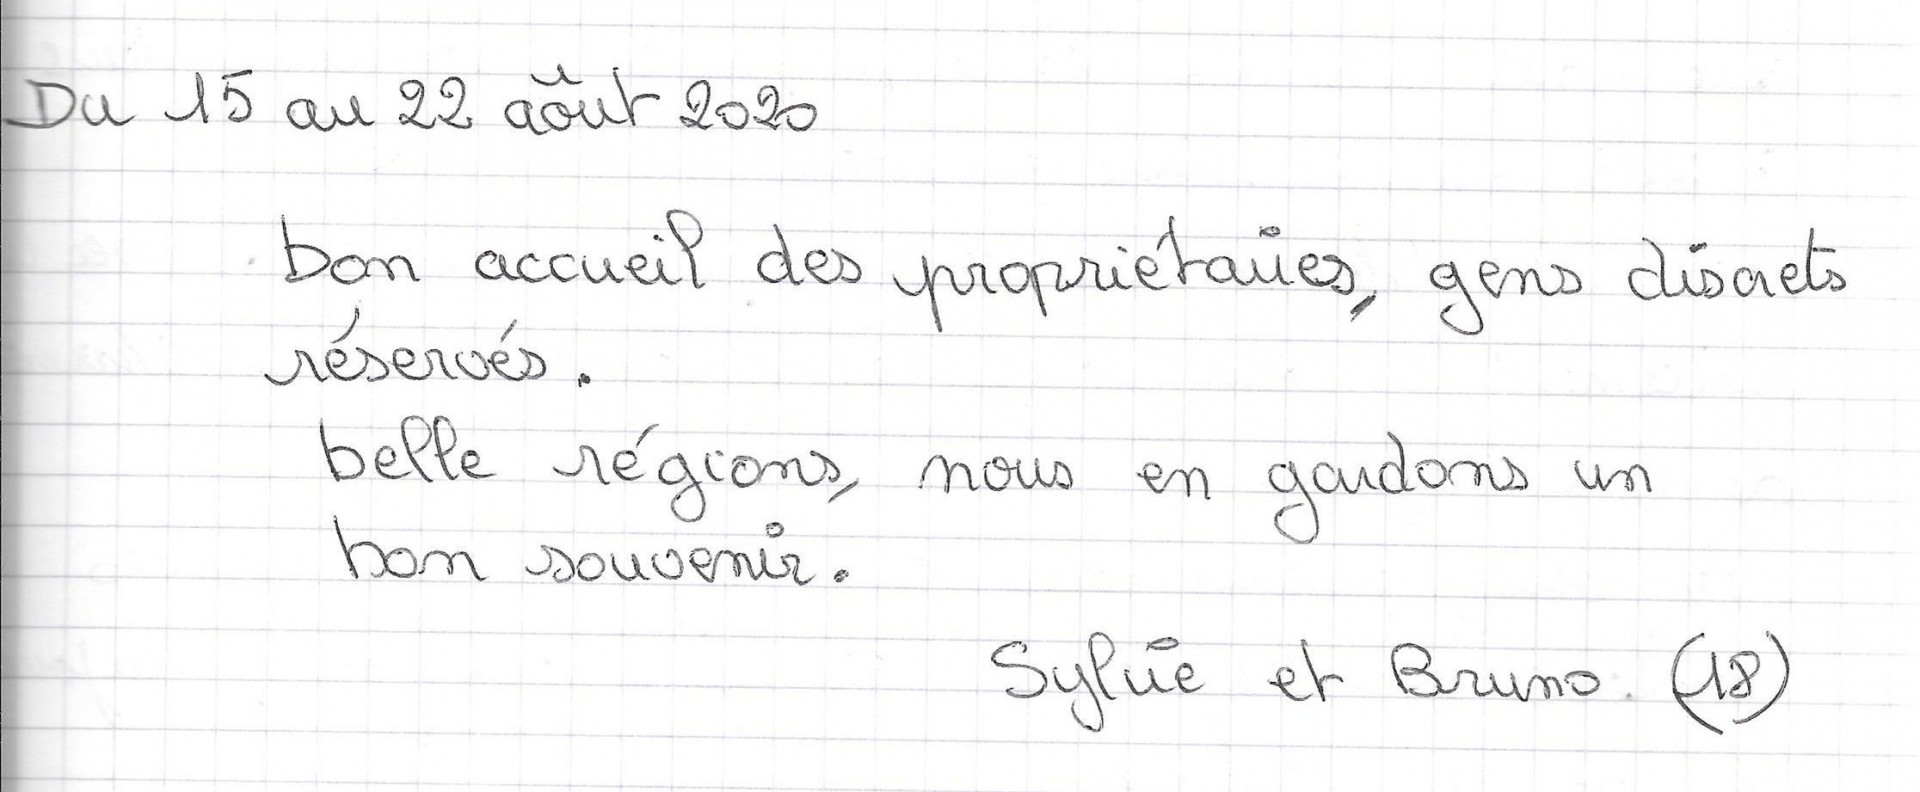 Du 15 au 22 août 2020
bon accueil des propriétaires, gens discrets
réservés.
belle régions, nous en gardons un
bon souvenir.
Sylvie et Bruno. (18)